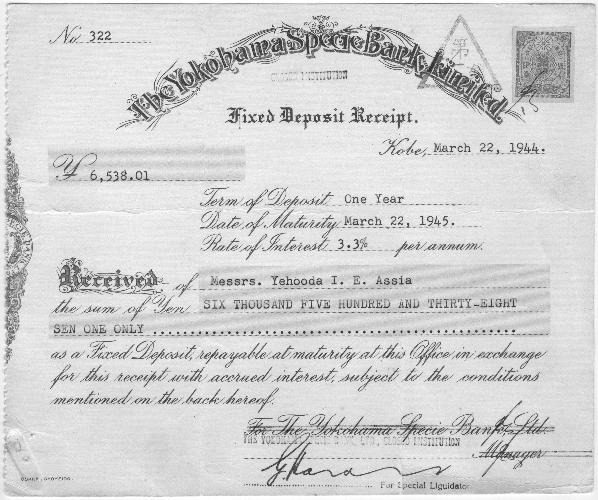 No. 322
The Yokohama Specie Bank, Limited.
CLOSED INSTITUTION
第
Fixed Deposit Receipt.
Kobe, March 22, 1944.
¥ 6,538.01
Term of Deposit One Year
Date of Maturity March 22, 1945.
Rate of Interest 3.3% per annum.
Received of Messrs. Yehooda I. E. Assia
the sum of Yen SIX THOUSAND FIVE HUNDRED AND THIRTY-EIGHT
SEN ONE ONLY
as a Fixed Deposit, repayable at maturity at this Office in exchange
for this receipt with accrued interest, subject to the conditions
mentioned on the back hereof.
For The Yokohama Specie Bank, Ltd.
THE YOKOHAMA SPECIE BANK, LTD., CLOSED INSTITUTION
Manager
For Special Liquidator